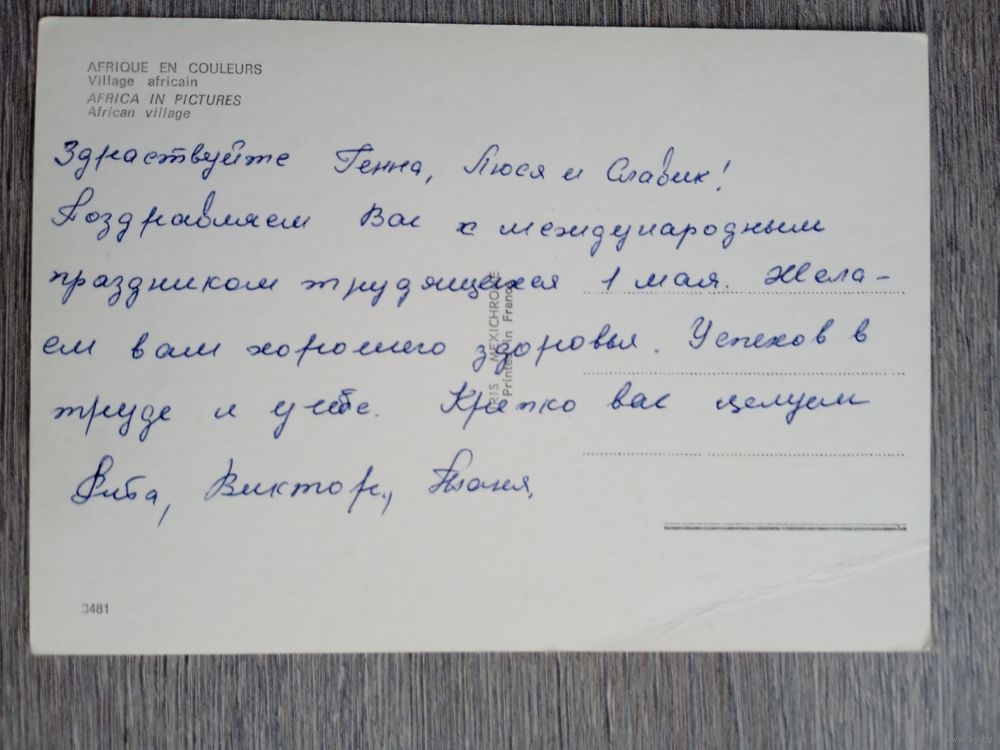 AFRIQUE EN COULEURS
Village africain
AFRICA IN PICTURES
African village
Здраствуйте Генна, Люся и Славик!
Поздравляем Вас с международным
праздником трудящихся 1 мая. Жела-
ем вам хорошего здоровья. Успехов в
труде и учебе. Крепко вас целуем
Виктор, Таня.
IRIS MEXICHROME
Printed in France
3481